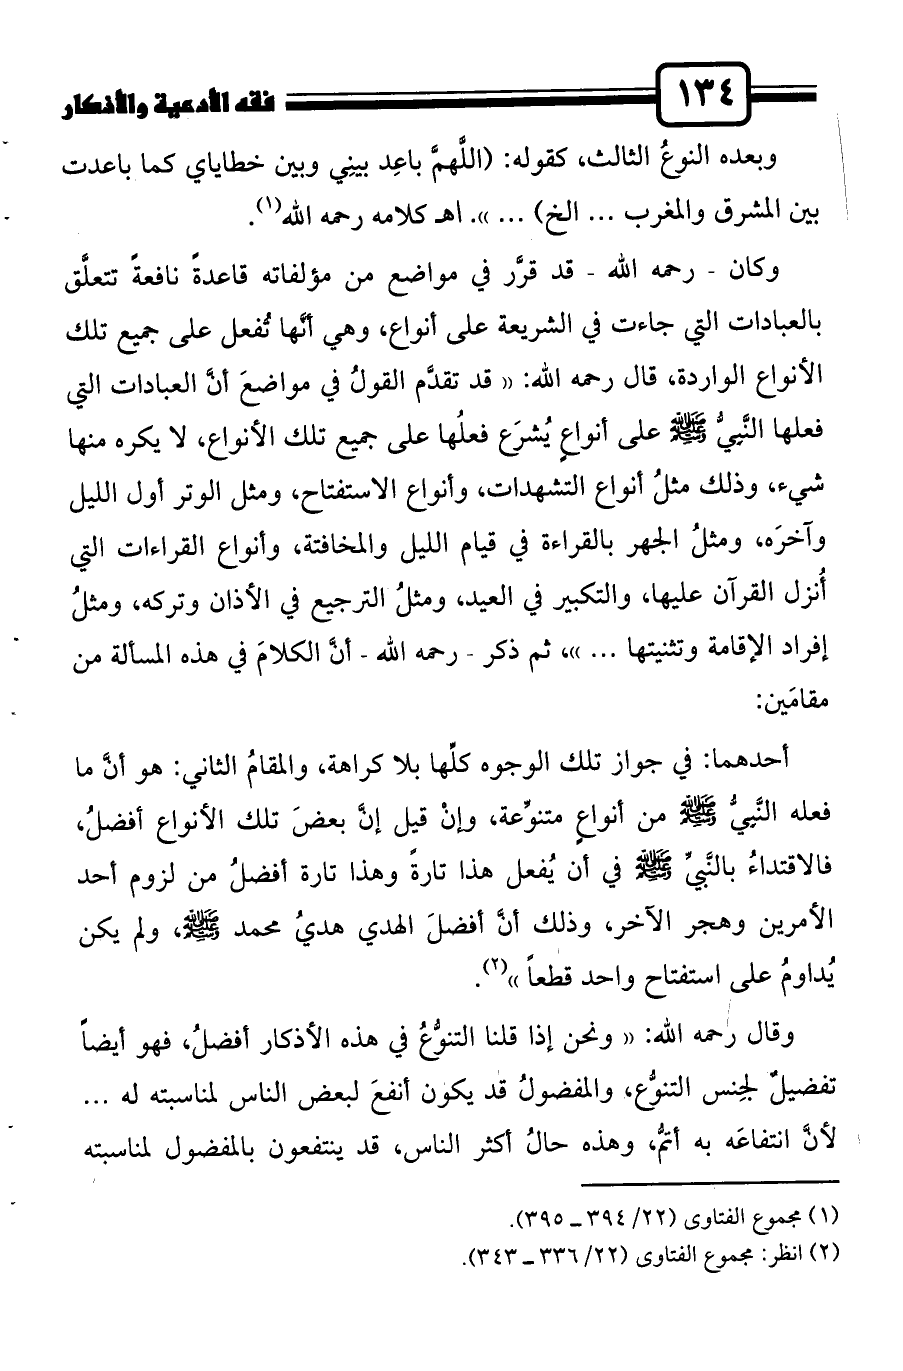 ١٣٤
فقه الأدعية والأذكار
وبعده النوعُ الثالث، كقوله: (اللَّهمَّ باعِد بينِي وبين خطاياي كما باعدت
بين المشرق والمغرب ... الخ) ... ». اهـ كلامه رحمه الله(١).
وكان - رحمه الله - قد قرَّر في مواضع من مؤلفاته قاعدةً نافعةً تتعلَّق
بالعبادات التي جاءت في الشريعة على أنواع، وهي أنَّها تُفعل على جميع تلك
الأنواع الواردة، قال رحمه الله: « قد تقدَّم القولُ في مواضعَ أنَّ العبادات التي
فعلها النَّبِيُّ ﷺ على أنواعٍ يُشرَع فعلُها على جميع تلك الأنواع، لا يكره منها
شيء، وذلك مثلُ أنواع التشهدات، وأنواع الاستفتاح، ومثل الوتر أول الليل
وآخرَه، ومثلُ الجهر بالقراءة في قيام الليل والمخافتة، وأنواع القراءات التي
أُنزل القرآن عليها، والتكبير في العيد، ومثلُ الترجيع في الأذان وتركه، ومثلُ
إفراد الإقامة وتثنيتها ... »، ثم ذكر - رحمه الله - أنَّ الكلامَ في هذه المسألة من
مقامَين:
أحدهما: في جواز تلك الوجوه كلِّها بلا كراهة، والمقامُ الثاني: هو أنَّ ما
فعله النَّبِيُّ ﷺ من أنواعٍ متنوِّعة، وإنْ قيل إنَّ بعضَ تلك الأنواع أفضلُ،
فالاقتداءُ بالنَّبِيِّ ﷺ في أن يُفعل هذا تارةً وهذا تارة أفضلُ من لزوم أحد
الأمرين وهجر الآخر، وذلك أنَّ أفضلَ الهدي هديُ محمد ﷺ، ولم يكن
يُداومُ على استفتاح واحد قطعاً »(٢).
وقال رحمه الله: « ونحن إذا قلنا التنوُّعُ في هذه الأذكار أفضلُ، فهو أيضاً
تفضيلٌ لجِنس التنوُّع، والمفضولُ قد يكون أنفعَ لبعض الناس لمناسبته له ...
لأنَّ انتفاعَه به أتمُّ، وهذه حالُ أكثر الناس، قد ينتفعون بالمفضول لمناسبته
(١) مجموع الفتاوى (٢٢/ ٣٩٤ ـ ٣٩٥).
(٢) انظر: مجموع الفتاوى (٢٢/ ٣٣٦ ـ ٣٤٣).